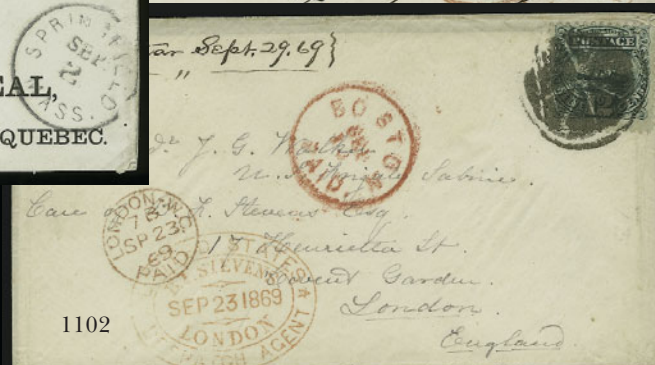 SPRINGFIELD
SEP
2
MASS.
EAL,
QUEBEC.
Sept. 29. 69}
"
POSTAGE
BOSTON
PAID
J. G. Walker
U. S.
Sabine.
Care of B. F. Stevens Esq.
17 Henrietta St.
Covent Garden.
London.
England.
LONDON-W.C
7 B
SP 23
69
PAID
UNITED STATES
B.F. STEVENS
SEP 23 1869
LONDON
DESPATCH AGENT
1102